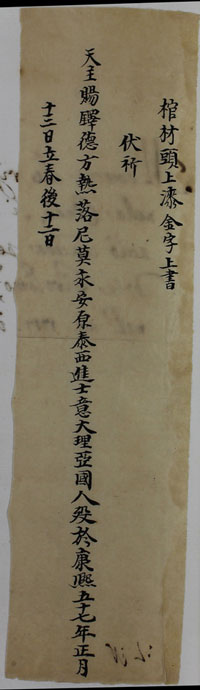 棺材頭上漆金字上書
伏祈
天主賜鐸德方熱落尼莫永安原泰西進士意大理亞國人歿於康熙五十七年正月
十三日立春後十二日